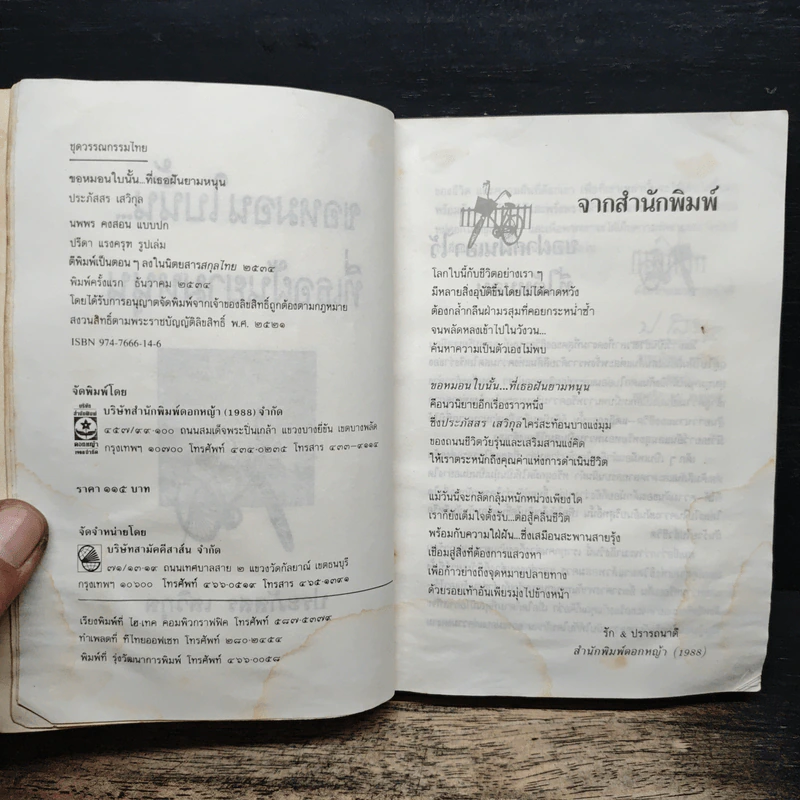 ชุดวรรณกรรมไทย
ขอหมอนใบนั้น...ที่เธอฝันยามหนุน
ประภัสสร เสวิกุล
นพพร คงสอน แบบปก
ปรีดา แรงครุฑ รูปเล่ม
ตีพิมพ์เป็นตอนๆ ลงในนิตยสารสกุลไทย ๒๕๓๔
พิมพ์ครั้งแรก ธันวาคม ๒๕๓๔
โดยได้รับการอนุญาตจัดพิมพ์จากเจ้าของลิขสิทธิ์ถูกต้องตามกฎหมาย
สงวนสิทธิ์ตามพระราชบัญญัติลิขสิทธิ์ พ.ศ. ๒๕๒๑
ISBN 974-7666-14-6
จัดพิมพ์โดย
บริษัท
สำนักพิมพ์
ดอกหญ้า
บริษัทสำนักพิมพ์ดอกหญ้า (1988) จำกัด
๔๕๗/๙๙-๑๐๐ ถนนสมเด็จพระปิ่นเกล้า แขวงบางยี่ขัน เขตบางพลัด
กรุงเทพฯ ๑๐๗๐๐ โทรศัพท์ ๔๓๔-๐๒๓๕ โทรสาร ๔๓๓-๙๑๑๔
ราคา ๑๑๕ บาท
จัดจำหน่ายโดย
บริษัทสามัคคีสาส์น จำกัด
๗๑/๑๓-๑๙ ถนนเทศบาลสาย ๒ แขวงวัดกัลยาณ์ เขตธนบุรี
กรุงเทพฯ ๑๐๖๐๐ โทรศัพท์ ๔๖๖-๐๕๑๙ โทรสาร ๔๖๕-๑๓๙๑
เรียงพิมพ์ที่ ไฮ-เทค คอมพิวกราฟฟิค โทรศัพท์ ๕๘๗-๕๓๗๙
ทำเพลตที่ ทีไทยออฟเซท โทรศัพท์ ๒๘๐-๒๔๕๔
พิมพ์ที่ รุ่งวัฒนาการพิมพ์ โทรศัพท์ ๔๖๖-๐๐๕๘
จากสำนักพิมพ์
โลกใบนี้กับชีวิตอย่างเรา ๆ
มีหลายสิ่งอุบัติขึ้นโดยไม่ได้คาดหวัง
ต้องกล้ำกลืนฝ่ามรสุมที่คอยกระหน่ำซ้ำ
จนพลัดหลงเข้าไปในวังวน...
ค้นหาความเป็นตัวเองไม่พบ
ขอหมอนใบนั้น...ที่เธอฝันยามหนุน
คือนวนิยายอีกเรื่องราวหนึ่ง
ซึ่งประภัสสร เสวิกุลใคร่สะท้อนบางแง่มุม
ของถนนชีวิตวัยรุ่นและเสริมสานแง่คิด
ให้เราตระหนักถึงคุณค่าแห่งการดำเนินชีวิต
แม้วันนี้จะกลัดกลุ้มหนักหน่วงเพียงใด
เราก็ยังเต็มใจตั้งรับ...ต่อสู้คลื่นชีวิต
พร้อมกับความใฝ่ฝัน...ซึ่งเสมือนสะพานสายรุ้ง
เชื่อมสู่สิ่งที่ต้องการแสวงหา
เพื่อก้าวย่างถึงจุดหมายปลายทาง
ด้วยรอยเท้าอันเพียรมุ่งไปข้างหน้า
รัก & ปรารถนาดี
สำนักพิมพ์ดอกหญ้า (1988)